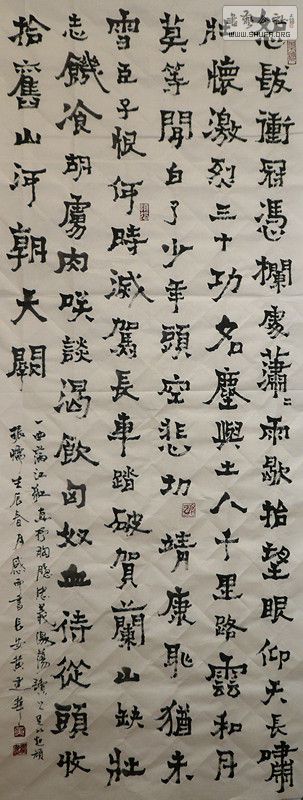 怒髮衝冠憑欄處瀟〻雨歇抬望眼仰天長嘯
壯懷激烈三十功名塵與土八千里路雲和月
莫等閒白了少年頭空悲切靖康恥猶未
雪臣子恨何時滅駕長車踏破賀蘭山缺壯
志饑飡胡虜肉笑談渴飲匈奴血待從頭收
拾舊山河朝天闕
一曲滿江紅直抒胸臆忠義激蕩讀之足以起頑
振懦壬辰春月感而書長安黃建
WWW.SHUFA.ORG